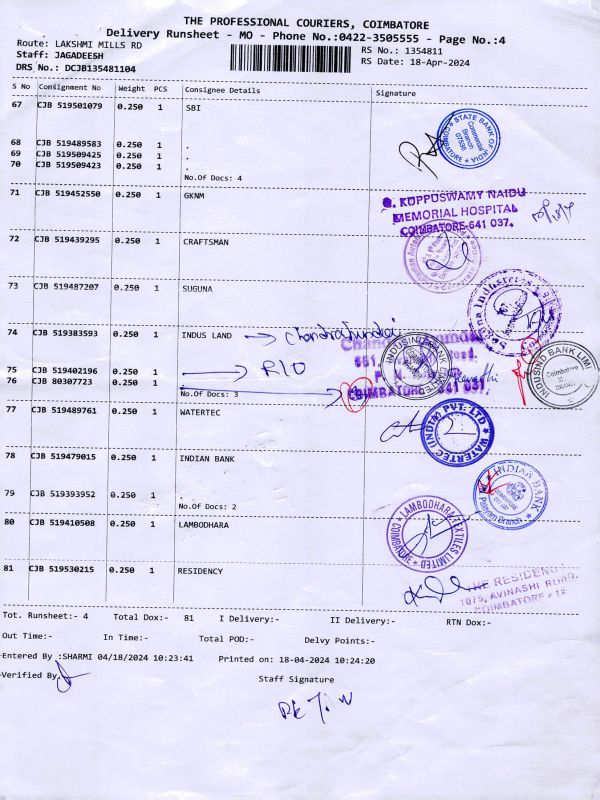 THE PROFESSIONAL COURIERS, COIMBATORE
Delivery Runsheet - MO - Phone No.:0422-3505555 - Page No.:4
Route: LAKSHMI MILLS RD
RS No.: 1354811
Staff: JAGADEESH
RS Date: 18-Apr-2024
DRS No.: DCJB135481104
S No Consignment No Weight PCS Consignee Details Signature
67 CJB 519501079 0.250 1 SBI
STATE BANK OF INDIA Commercial Branch COIMBATORE
68 CJB 519489583 0.250 1 .
69 CJB 519509425 0.250 1 .
70 CJB 519509423 0.250 1 .
No.Of Docs: 4
71 CJB 519452550 0.250 1 GKNM
G. KUPPUSWAMY NAIDU
MEMORIAL HOSPITAL
COIMBATORE-641 037.
72 CJB 519439295 0.250 1 CRAFTSMAN
73 CJB 519487207 0.250 1 SUGUNA
74 CJB 519383593 0.250 1 INDUS LAND
INDUSIND BANK LIMITED
INDUSIND BANK LIMI Coimbatore
75 CJB 519402196 0.250 1 RIO
76 CJB 80307723 0.250 1
No.Of Docs: 3
COIMBATORE 641 037.
77 CJB 519489761 0.250 1 WATERTEC
WATERTEC (INDIA) PVT. LTD
78 CJB 519479015 0.250 1 INDIAN BANK
INDIAN BANK
79 CJB 519393952 0.250 1 .
No.Of Docs: 2
80 CJB 519410508 0.250 1 LAMBODHARA
LAMBODHARA TEXTILES LIMITED COIMBATORE
81 CJB 519530215 0.250 1 RESIDENCY
THE RESIDENCY
1075, AVINASHI ROAD,
COIMBATORE - 18
Tot. Runsheet:- 4 Total Dox:- 81 I Delivery:- II Delivery:- RTN Dox:-
Out Time:- In Time:- Total POD:- Delvy Points:-
Entered By :SHARMI 04/18/2024 10:23:41 Printed on: 18-04-2024 10:24:20
Verified By
Staff Signature